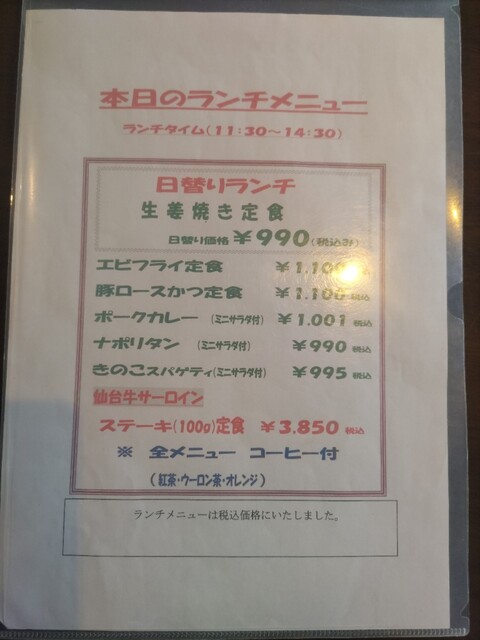 本日のランチメニュー
ランチタイム(11:30～14:30)
日替りランチ
生姜焼き定食
日替り価格 ￥990(税込み)
エビフライ定食 ￥1,100 税込
豚ロースかつ定食 ￥1,100 税込
ポークカレー (ミニサラダ付) ￥1.001 税込
ナポリタン (ミニサラダ付) ￥990 税込
きのこスパゲティ(ミニサラダ付) ￥995 税込
仙台牛サーロイン
ステーキ(100g)定食 ￥3.850 税込
※ 全メニュー コーヒー付
(紅茶・ウーロン茶・オレンジ)
ランチメニューは税込価格にいたしました。